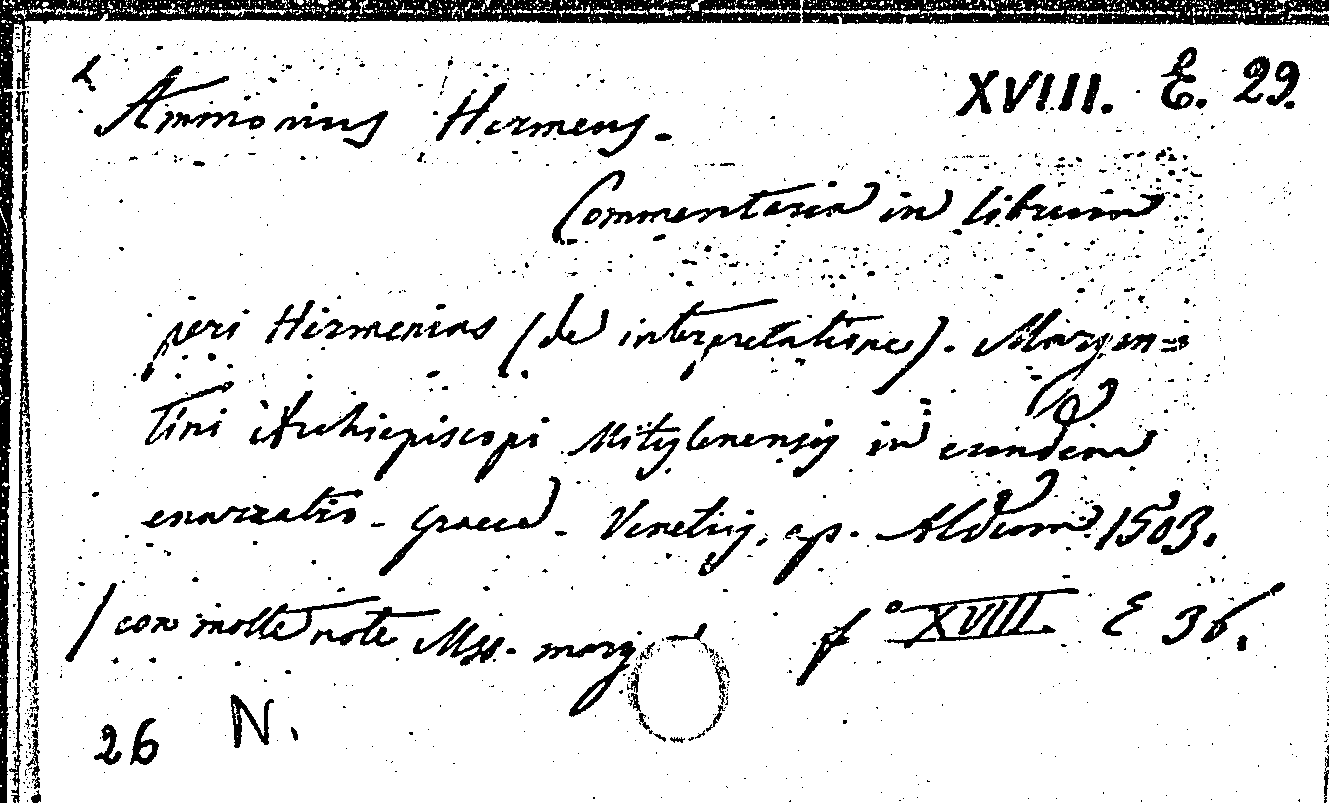 XVIII. E. 29.
Ammonius Hermeus.
Commentaria in librum
peri Hermenias (de interpretatione). Margen=
tini Archiepiscopi Mitylenensis in eundem
enarratio. Graece. Venetiis, ap. Aldum 1503.
(con molte note Mss. marg f° XVIII. E 36.
26 N.